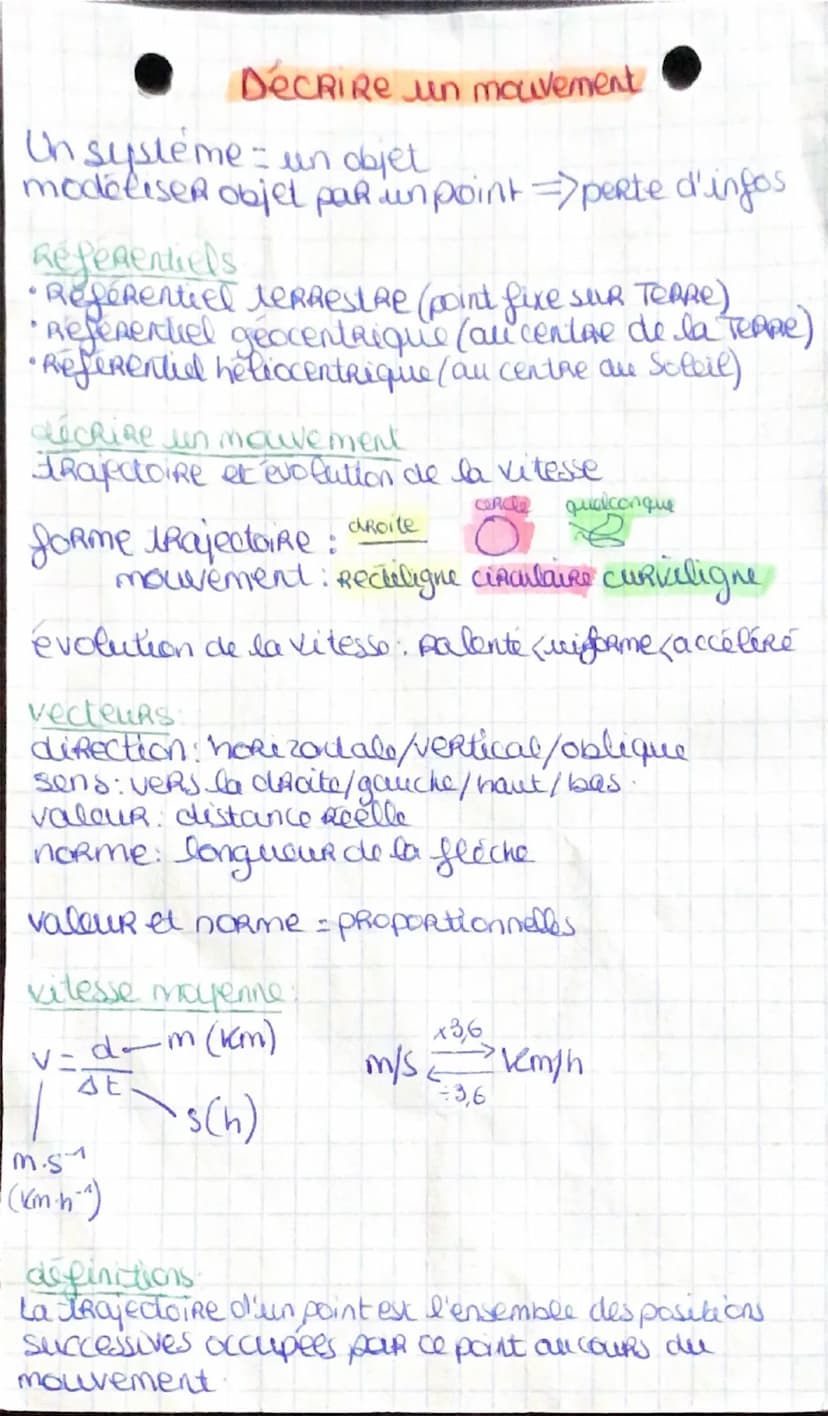 Décrire un mouvement
Un système = un objet
modéliser objet par un point => perte d'infos
Référentiels
• Référentiel terrestre (point fixe sur Terre)
• Référentiel géocentrique (au centre de la Terre)
• Référentiel héliocentrique (au centre du Soleil)
décrire un mouvement
trajectoire et évolution de la vitesse
forme trajectoire : droite cercle qualconque
mouvement : rectiligne circulaire curviligne
évolution de la vitesse : ralenti < uniforme < accéléré
vecteurs:
direction : horizontale/vertical/oblique
sens : vers la droite/gauche/haut/bas.
valeur : distance réelle
norme : longueur de la flèche
valeur et norme = proportionnelles
vitesse moyenne:
v = d/Δt
m (km)
s(h)
m.s⁻¹
(km.h⁻¹)
x3,6
m/s ⇄ km/h
÷3,6
définitions:
La trajectoire d'un point est l'ensemble des positions
successives occupées par ce point au cours du
mouvement.